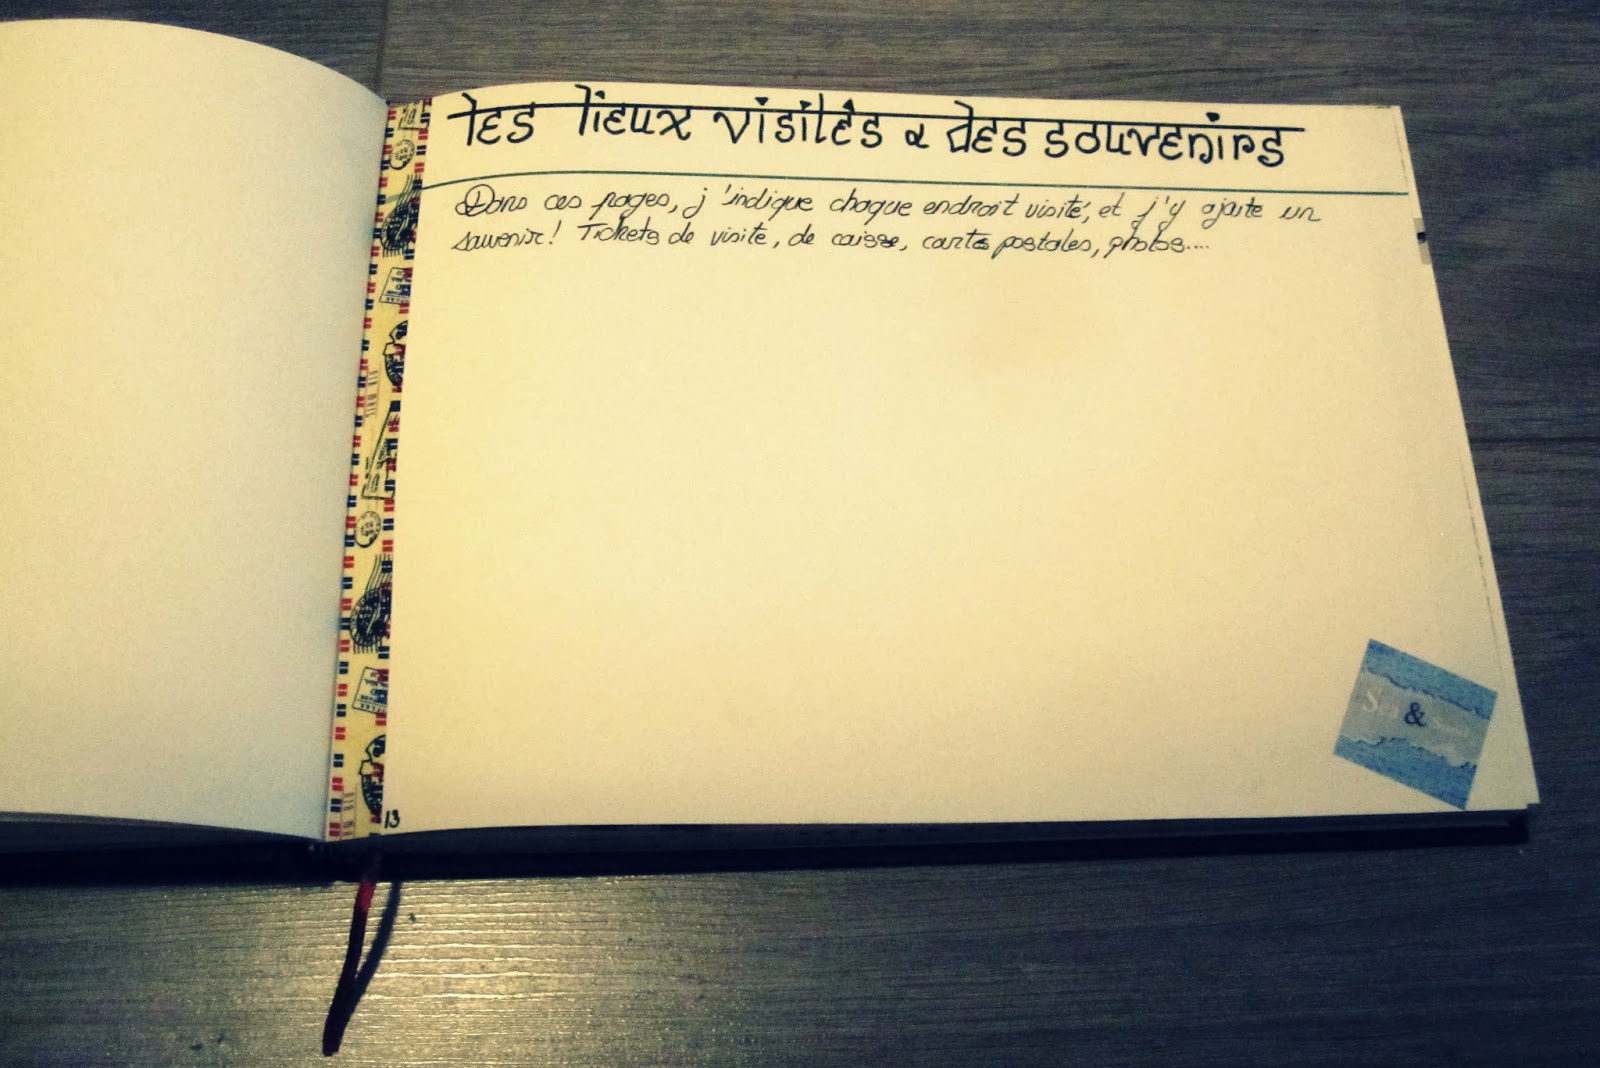 les lieux visités & des souvenirs
Dans ces pages, j'indique chaque endroit visité, et j'y ajoute un
souvenir! Tickets de visite, de caisse, cartes postales, photos....
Sea &
13